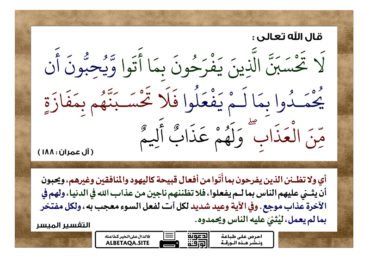 قال الله تعالى :
لَا تَحْسَبَنَّ الَّذِينَ يَفْرَحُونَ بِمَا أَتَوا وَّيُحِبُّونَ أَن
يُحْمَدُوا بِمَا لَمْ يَفْعَلُوا فَلَا تَحْسَبَنَّهُم بِمَفَازَةٍ
مِّنَ الْعَذَابِ ۖ وَلَهُمْ عَذَابٌ أَلِيمٌ
( آل عمران : ١٨٨ )
أي ولا تظنن الذين يفرحون بما أَتَوا من أفعال قبيحة كاليهود والمنافقين وغيرهم، ويحبون
أن يثني عليهم الناس بما لم يفعلوا، فلا تظننهم ناجين من عذاب الله في الدنيا، ولهم في
الآخرة عذاب موجع. وفي الآية وعيد شديد لكل آت لفعل السوء معجب به، ولكل مفتخر
بما لم يعمل، ليُثني عليه الناس ويحمدوه.
التفسير الميسر
احرص على طباعة
ونشر هذه الورقة
ALBETAQA.SITE